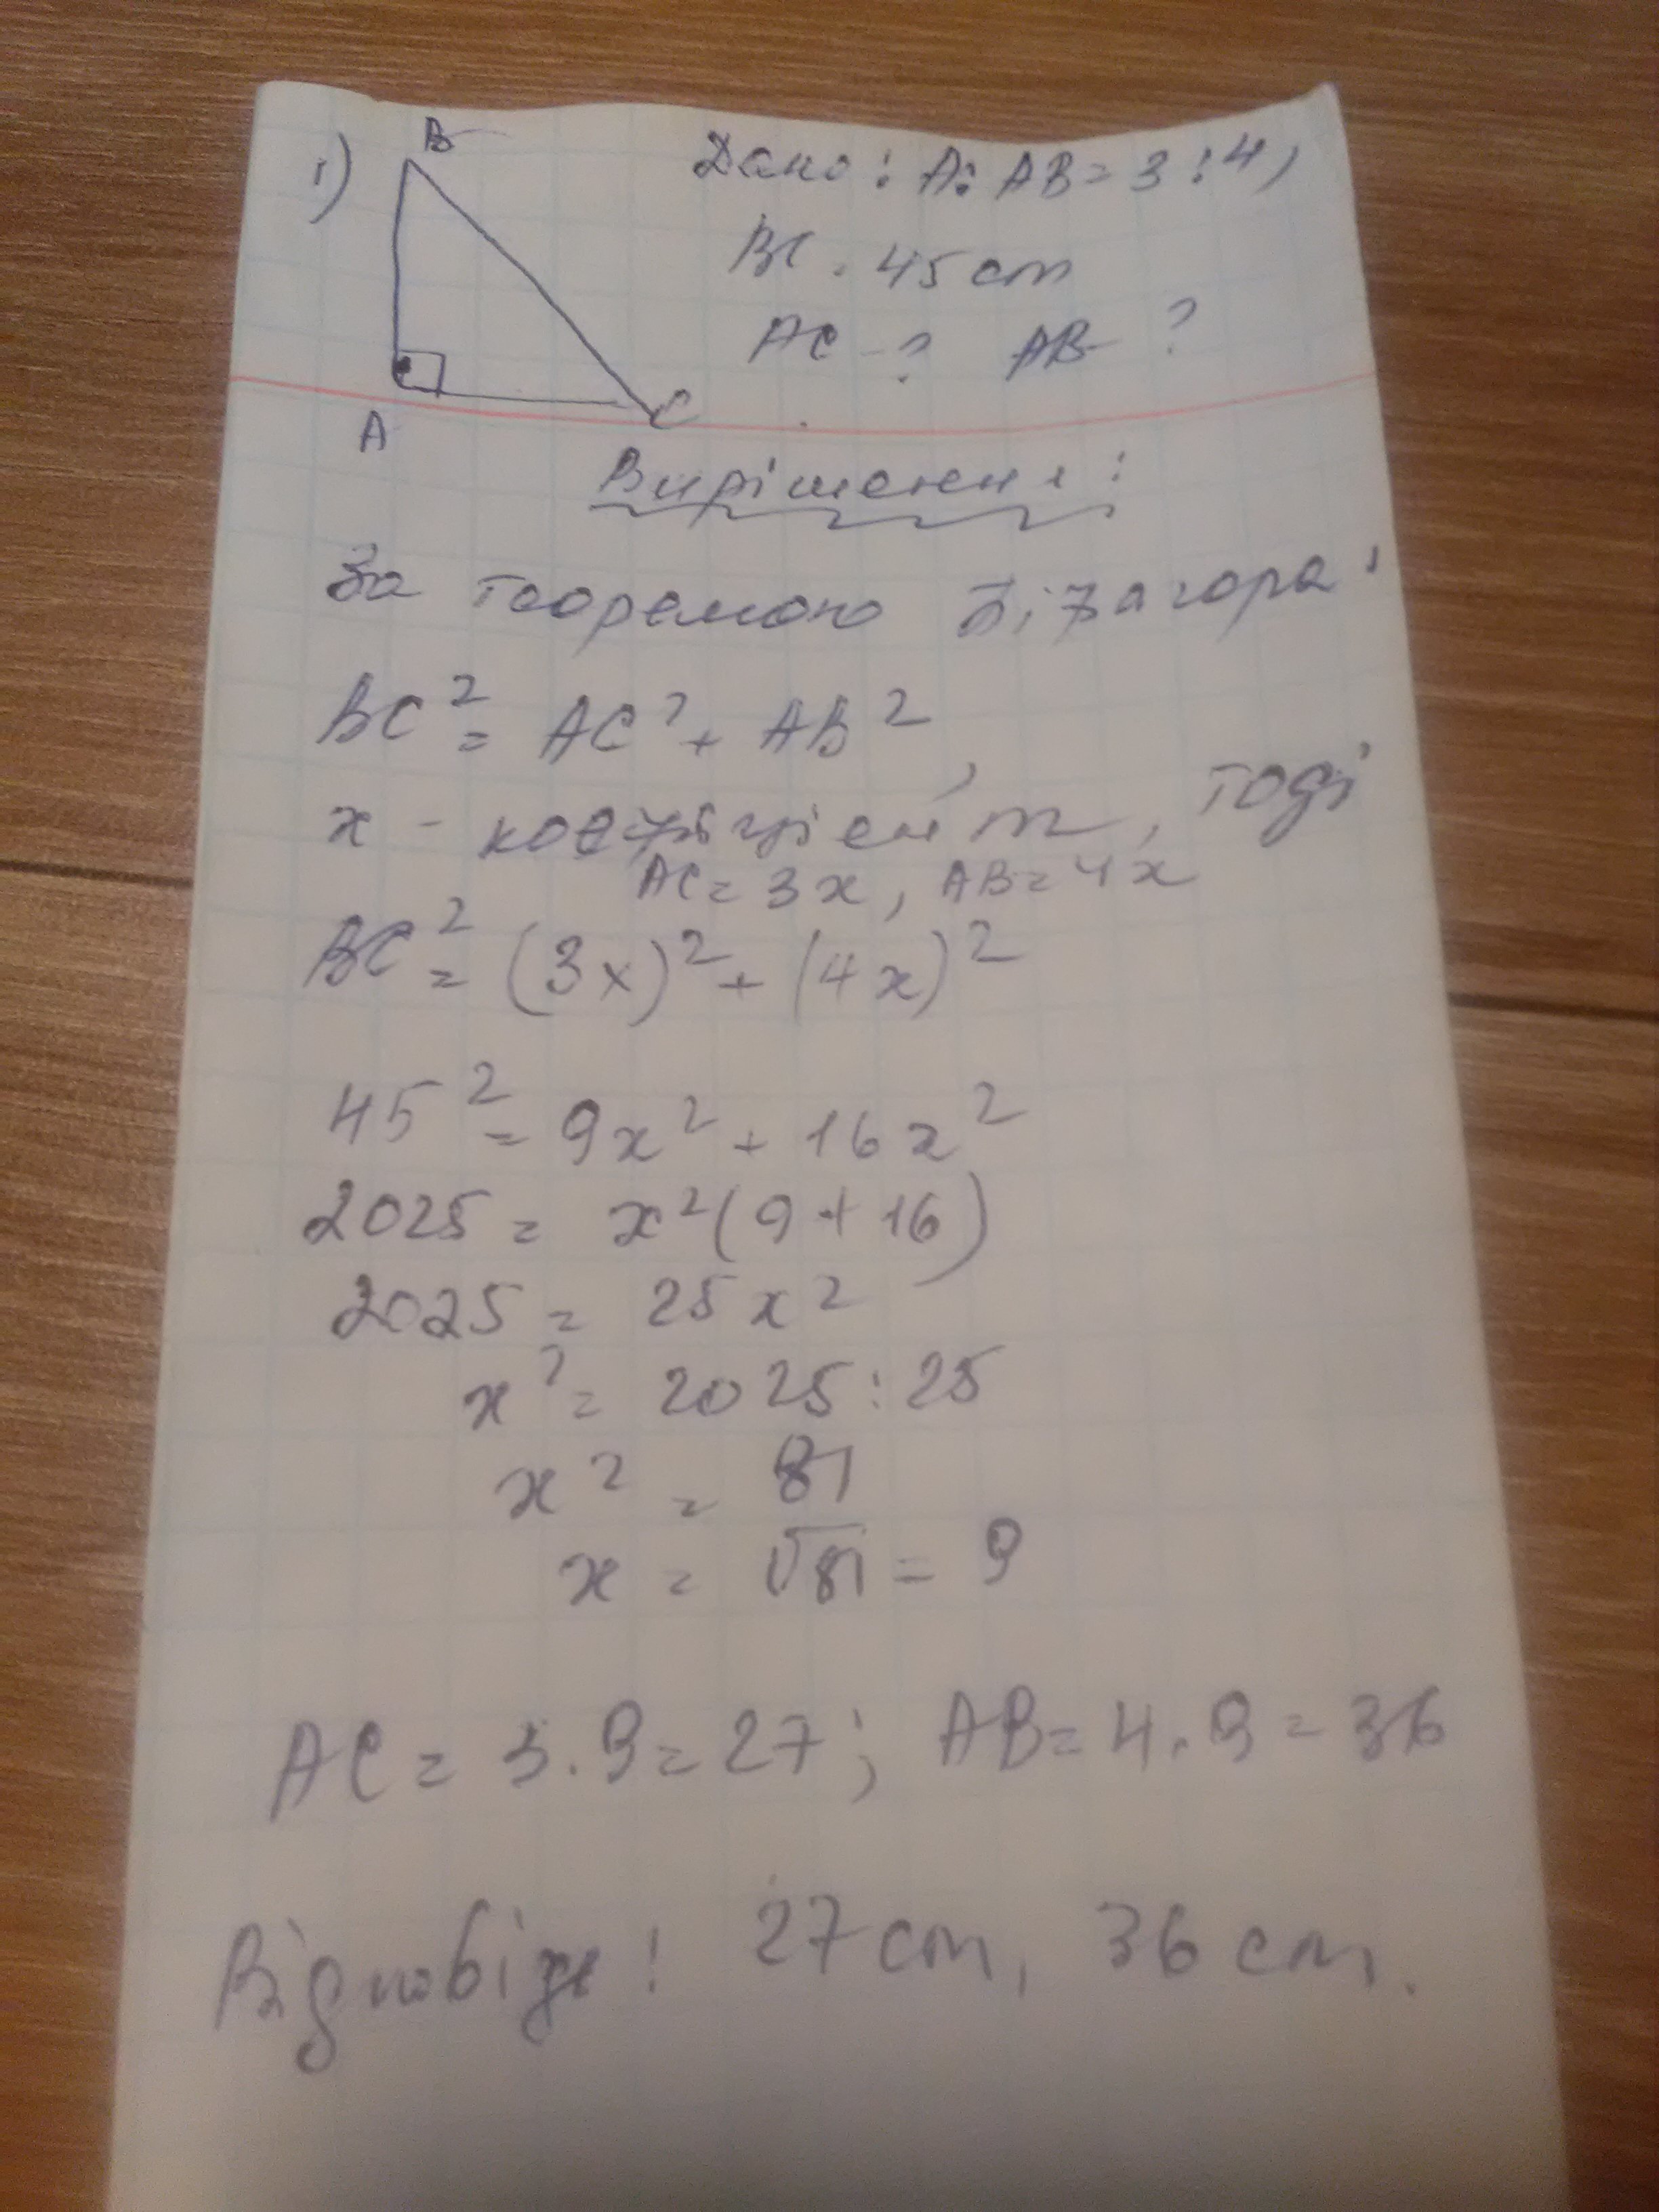 1)
B
Дано: A: AB = 3:4,
BC = 45 cm
AC - ? AB - ?
A
C
Вирішення:
За теоремою Піфагора:
BC² = AC² + AB²,
x - коефіцієнт, тоді
AC = 3x, AB = 4x
BC² = (3x)² + (4x)²
45² = 9x² + 16x²
2025 = x²(9+16)
2025 = 25x²
x² = 2025:25
x² = 81
x = √81 = 9
AC = 3·9 = 27; AB = 4·9 = 36
27 cm, 36 cm.